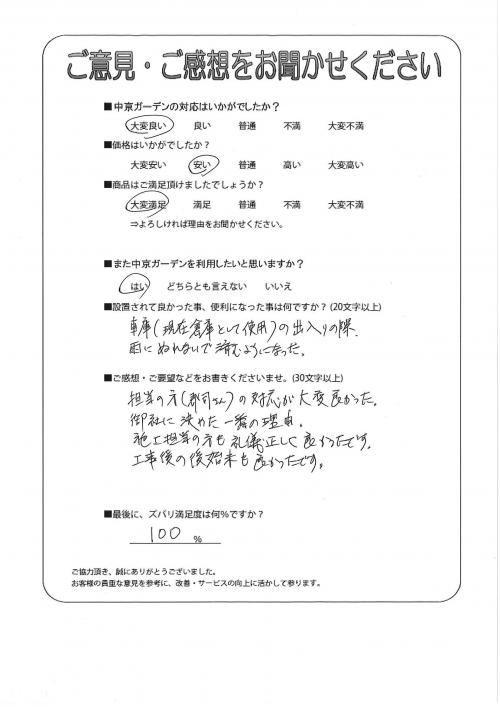 ご意見・ご感想をお聞かせください
■中京ガーデンの対応はいかがでしたか？
大変良い 良い 普通 不満 大変不満
■価格はいかがでしたか？
大変安い 安い 普通 高い 大変高い
■商品はご満足頂けましたでしょうか？
大変満足 満足 普通 不満 大変不満
⇒よろしければ理由をお聞かせください。
■また中京ガーデンを利用したいと思いますか？
はい どちらとも言えない いいえ
■設置されて良かった事、便利になった事は何ですか？(20文字以上)
車庫(現在倉庫として使用)の出入りの際、
雨にぬれないで済むようになった。
■ご感想・ご要望などをお書きくださいませ。(30文字以上)
担当の方(郡司さん)の対応が大変良かった。
御社に決めた一番の理由。
施工担当の方も礼儀正しく良かったです。
工事後の後始末も良かったです。
■最後に、ズバリ満足度は何％ですか？
100 ％
ご協力頂き、誠にありがとうございました。
お客様の貴重な意見を参考に、改善・サービスの向上に活かして参ります。